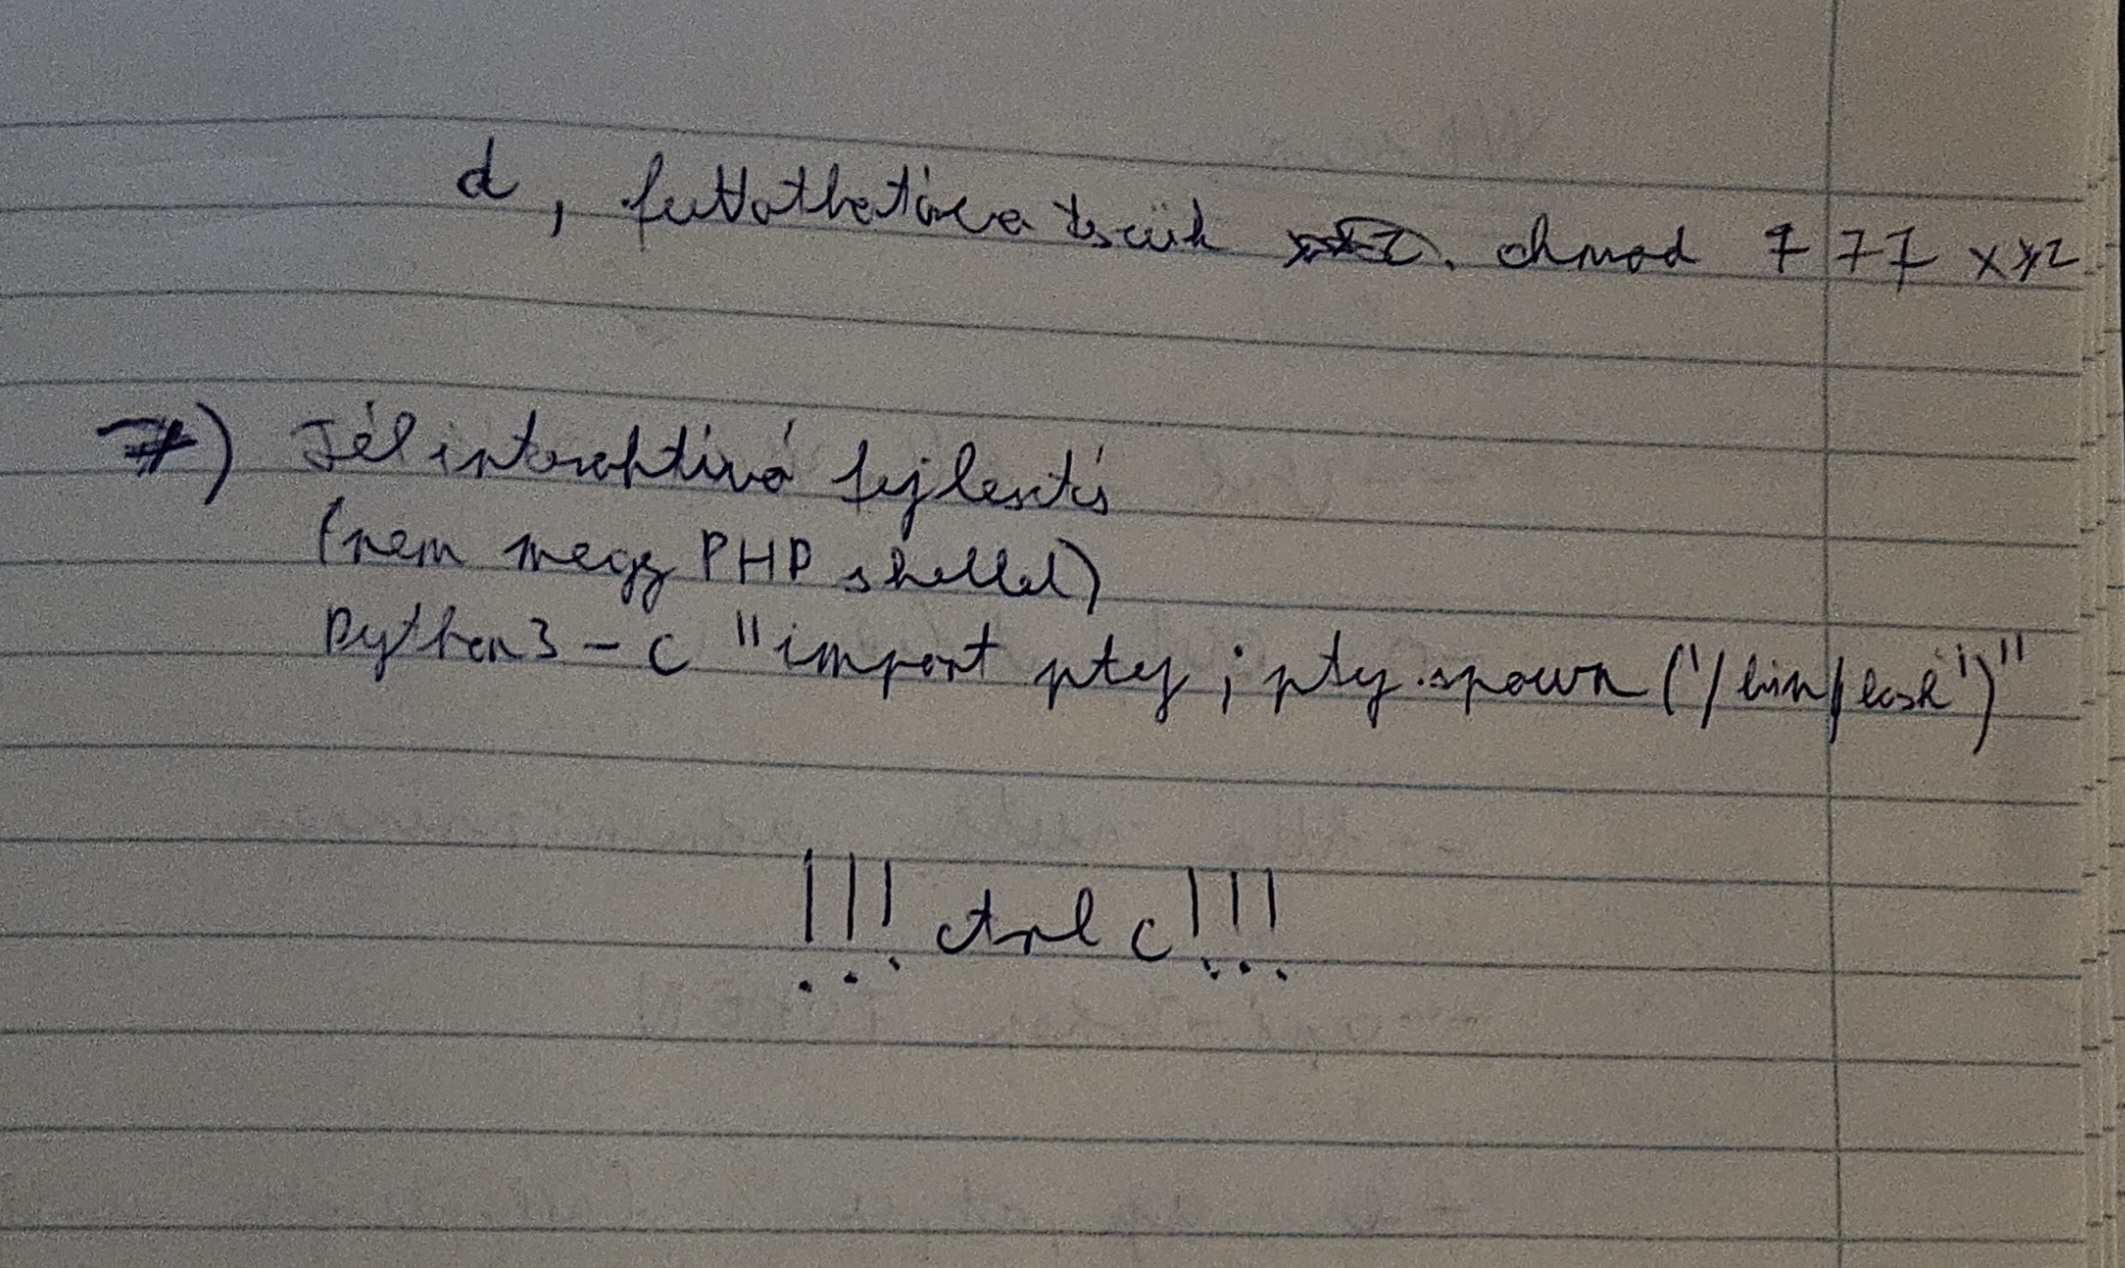 d, futtathatóvá teszük chmod 777 xyz
7) Félinteraktívvá fejlesztés
(nem megy PHP shellel)
Python3 -c "import pty; pty.spawn('/bin/bash')"
!!! ctrl c!!!